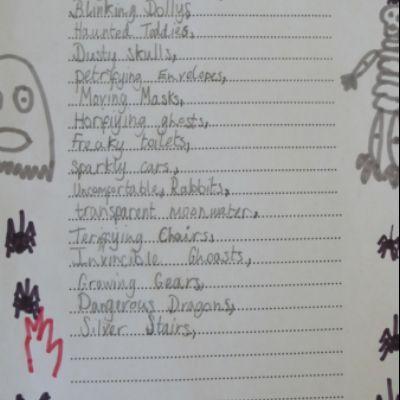 Blinking Dollys
Haunted Teddies,
Dusty Skulls,
petrifying Envelopes,
Moving Masks,
Horrfiying ghosts,
freaky toilets,
sparkly cars,
Uncomfortable, Rabbits,
transparent moonwater,
Terrifying Chairs,
Invincible Ghoasts,
Growing Gears,
Dangerous Dragons,
Silver Stairs,